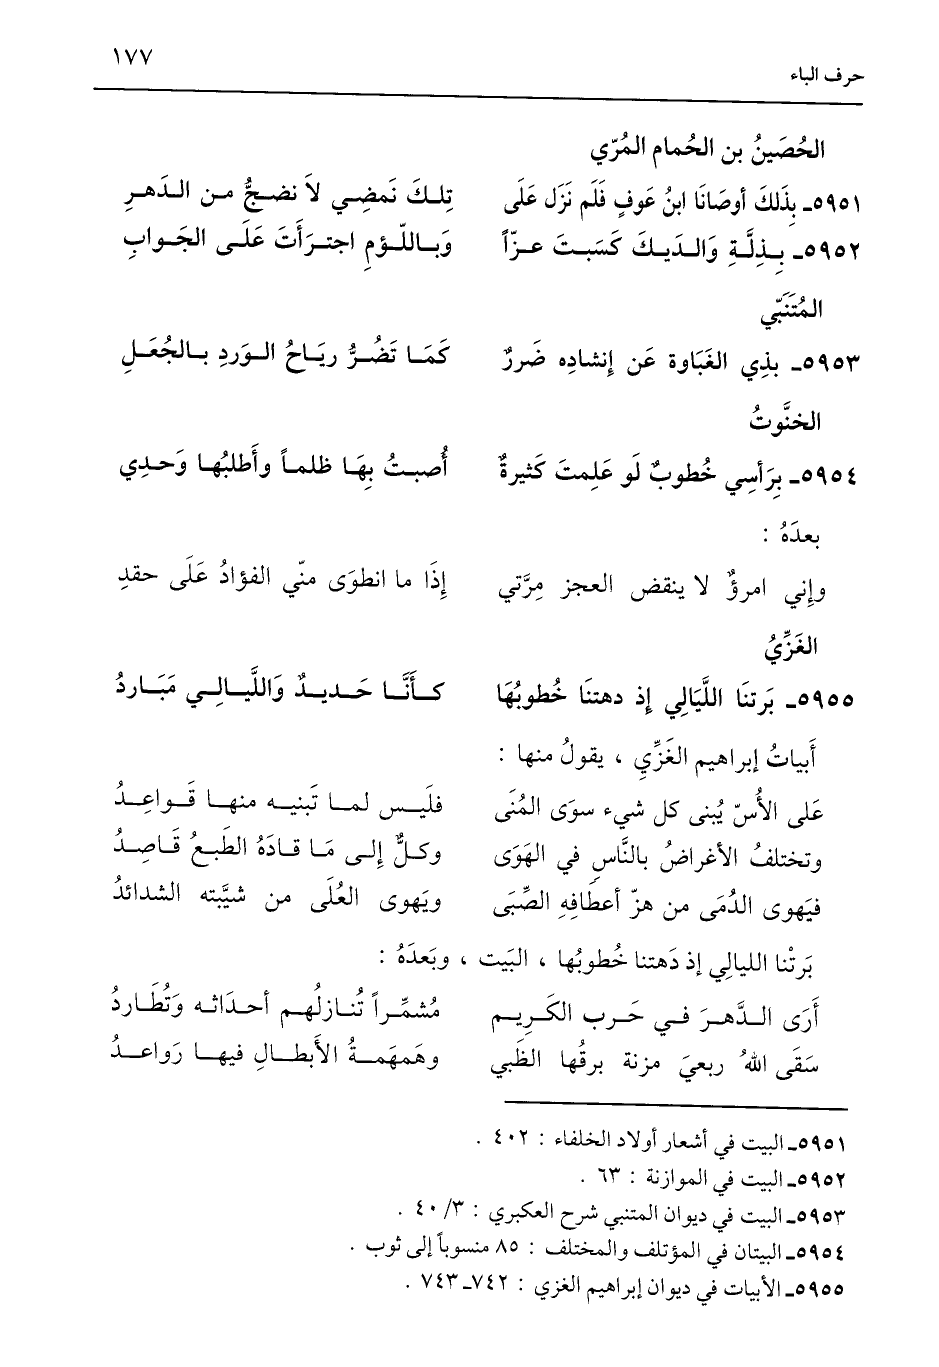 ١٧٧
حرف الباء
الحُصَينُ بن الحُمام المُرّي
٥٩٥١ـ بِذَلكَ أوصَانَا ابنُ عَوفٍ فَلَم نَزَل عَلَى تِلـكَ نَمضِـي لاَ نضـجُّ مـن الـدَهـرِ
٥٩٥٢ـ بِـذِلَّـةِ وَالـدَيـكَ كَسَبـتَ عـزّاً وَبـاللّـؤمِ اجتـرَأتَ عَلَـى الجَـوابِ
المُتَنَبّي
٥٩٥٣ـ بذِي الغَبَاوة عَن إنشاده ضَررٌ كَمَـا تَضُـرُّ ريَـاحُ الـوَردِ بـالجُعَـلِ
الخنَّوتُ
٥٩٥٤ـ بِرَأسِي خُطوبٌ لَو عَلِمتَ كَثيرةٌ أُصبـتُ بِهَـا ظلمـاً وأَطلبُهـا وَحـدِي
بعدَهُ :
وإني امرؤٌ لا ينقض العجز مِرَّتي إذَا ما انطوَى منّي الفؤادُ عَلَى حقدِ
الغَزِّيُ
٥٩٥٥ـ بَرتنَا اللَّيَالِي إذ دهتنَا خُطوبُهَا كـأَنَّـا حَـديـدٌ وَاللَّيـالِـي مَبَـاردُ
أَبياتُ إبراهيم الغَزِّي ، يقولُ منها :
عَلى الأُسّ يُبنى كل شيء سوَى المُنَى فلَيـس لمـا تَبنيـه منهـا قَـواعـدُ
وتختلفُ الأغراضُ بالنَّاسِ في الهَوَى وكـلٌّ إلـى مَـا قـادَهُ الطَبـعُ قَـاصِـدُ
فيَهوى الدُمَى من هزّ أعطَافِهِ الصِّبَى ويَهوى العُلَى من شيَّبته الشدائدُ
بَرتْنا الليالِي إذ دَهتنا خُطوبُها ، البَيت ، وبَعدَهُ :
أَرَى الـدَّهـرَ فـي حَـرب الكَـرِيـم مُشمِّـراً تُنـازلُهـم أحـدَاثـه وَتُطـاردُ
سَقَى اللهُ ربعيَ مزنة برقُها الظَبي وهَمهَمـةُ الأَبطـالِ فيهـا رَواعـدُ
٥٩٥١ـ البيت في أشعار أولاد الخلفاء : ٤٠٢ .
٥٩٥٢ـ البيت في الموازنة : ٦٣ .
٥٩٥٣ـ البيت في ديوان المتنبي شرح العكبري : ٣/ ٤٠ .
٥٩٥٤ـ البيتان في المؤتلف والمختلف : ٨٥ منسوباً إلى ثوب .
٥٩٥٥ـ الأبيات في ديوان إبراهيم الغزي : ٧٤٢ـ٧٤٣ .